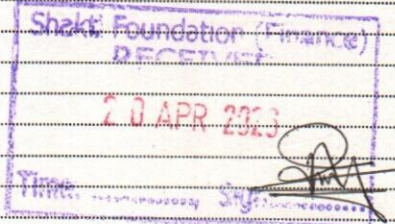 Shakti Foundation (Finance)
RECEIVED
20 APR 2023
Time.................., Sig..................